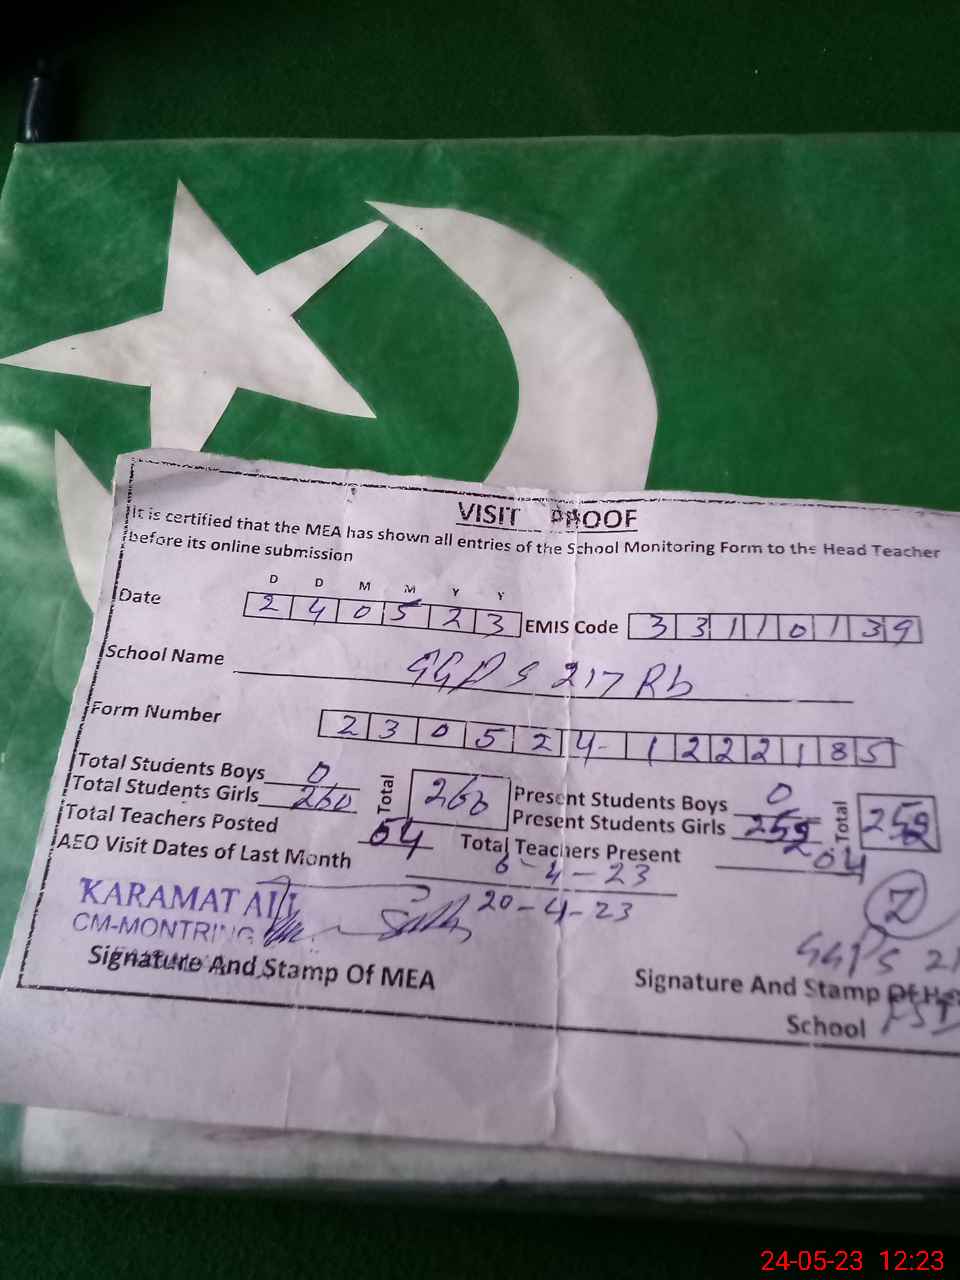 VISIT PROOF
It is certified that the MEA has shown all entries of the School Monitoring Form to the Head Teacher
before its online submission
D D M M Y Y
Date 2 4 0 5 2 3 EMIS Code 3 3 1 1 0 1 3 9
School Name GGPS 217 Rb
Form Number 2 3 0 5 2 4 - 1 2 2 2 1 8 5
Total Students Boys 0 Total 260 Present Students Boys 0 Total
Total Students Girls 260 Present Students Girls
Total Teachers Posted 04 Total Teachers Present 04
AEO Visit Dates of Last Month 6-4-23
20-4-23
KARAMAT ALI
CM-MONTRING
Signature And Stamp Of MEA
GGPS
Signature And Stamp Of
School
24-05-23 12:23